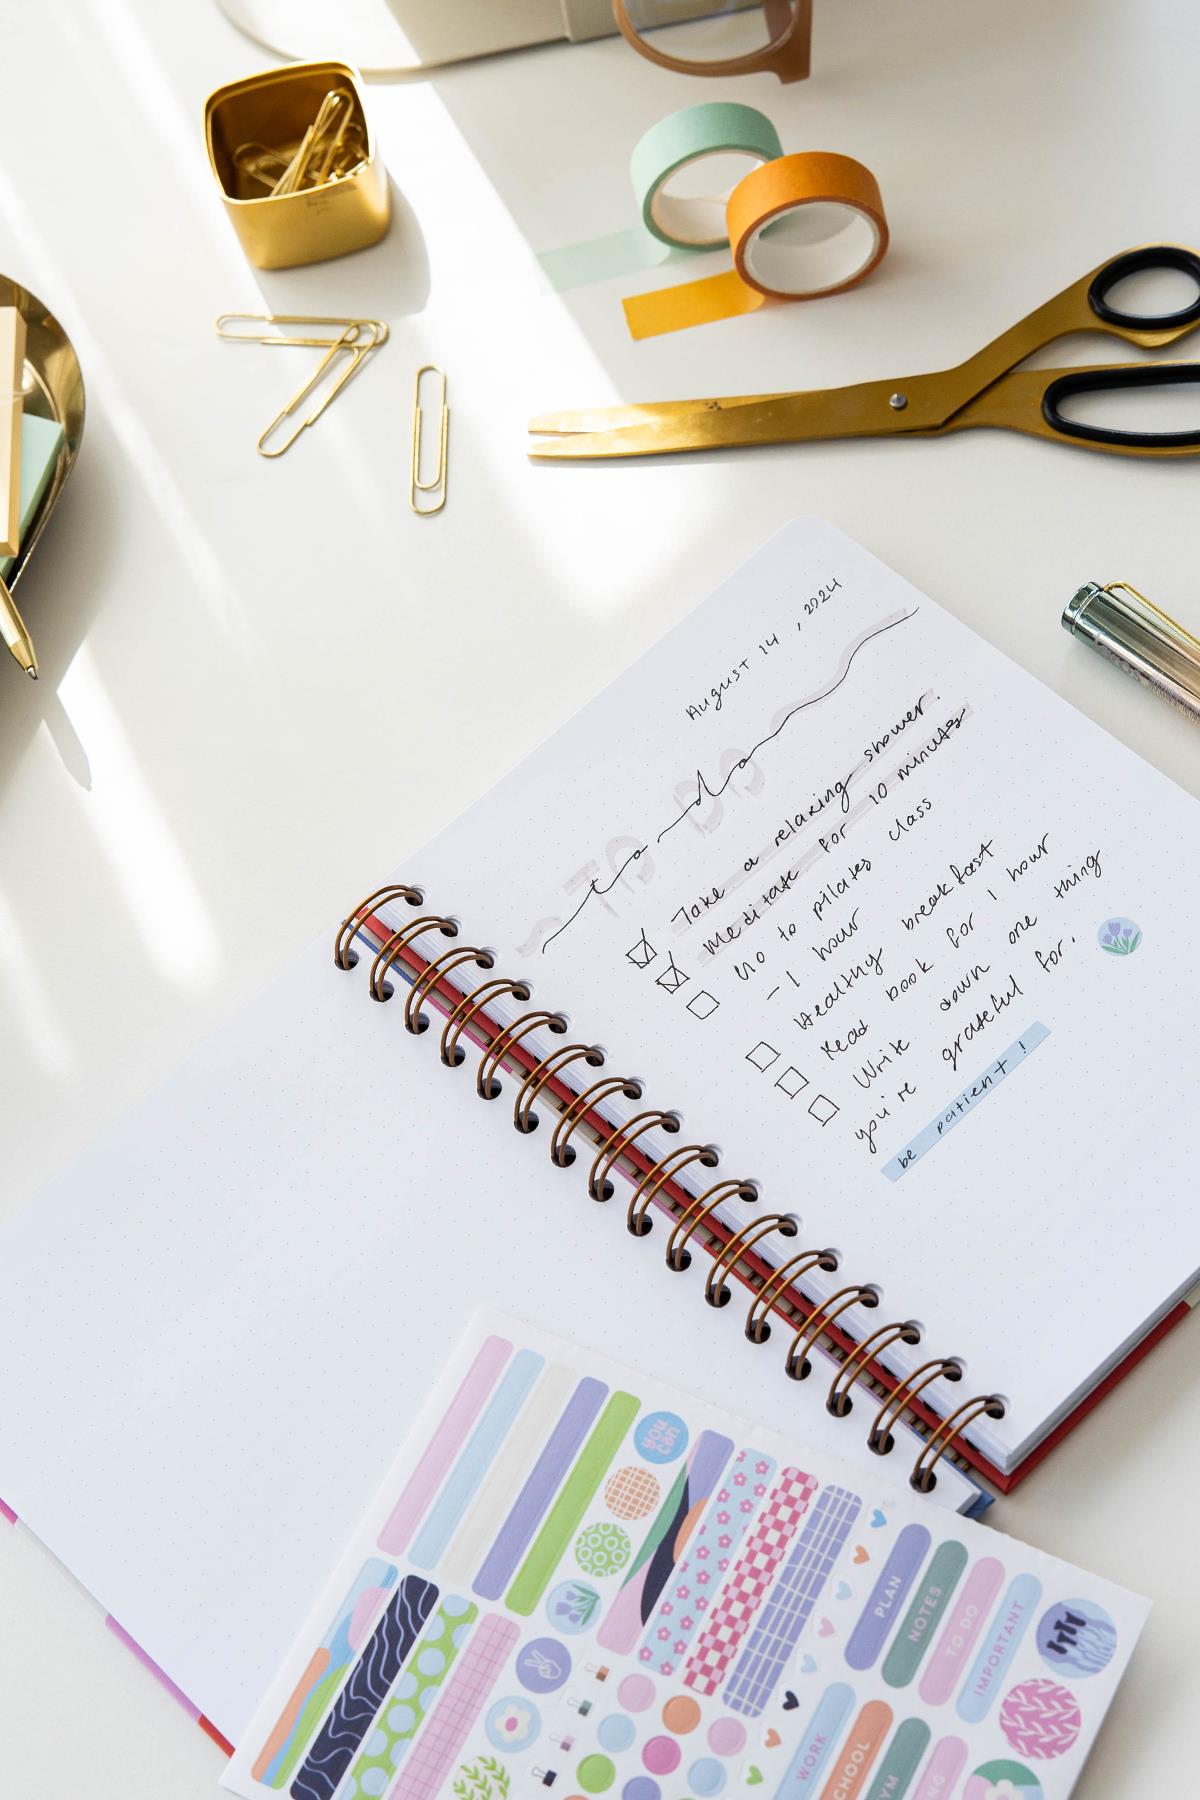 August 14, 2024
to do
Take a relaxing shower.
Meditate for 10 minutes
Go to pilates class
- 1 hour
Healthy breakfast
Read book for 1 hour
Write down one thing
you're grateful for.
be patient!
you can
PLAN
NOTES
TO DO
IMPORTANT
WORK